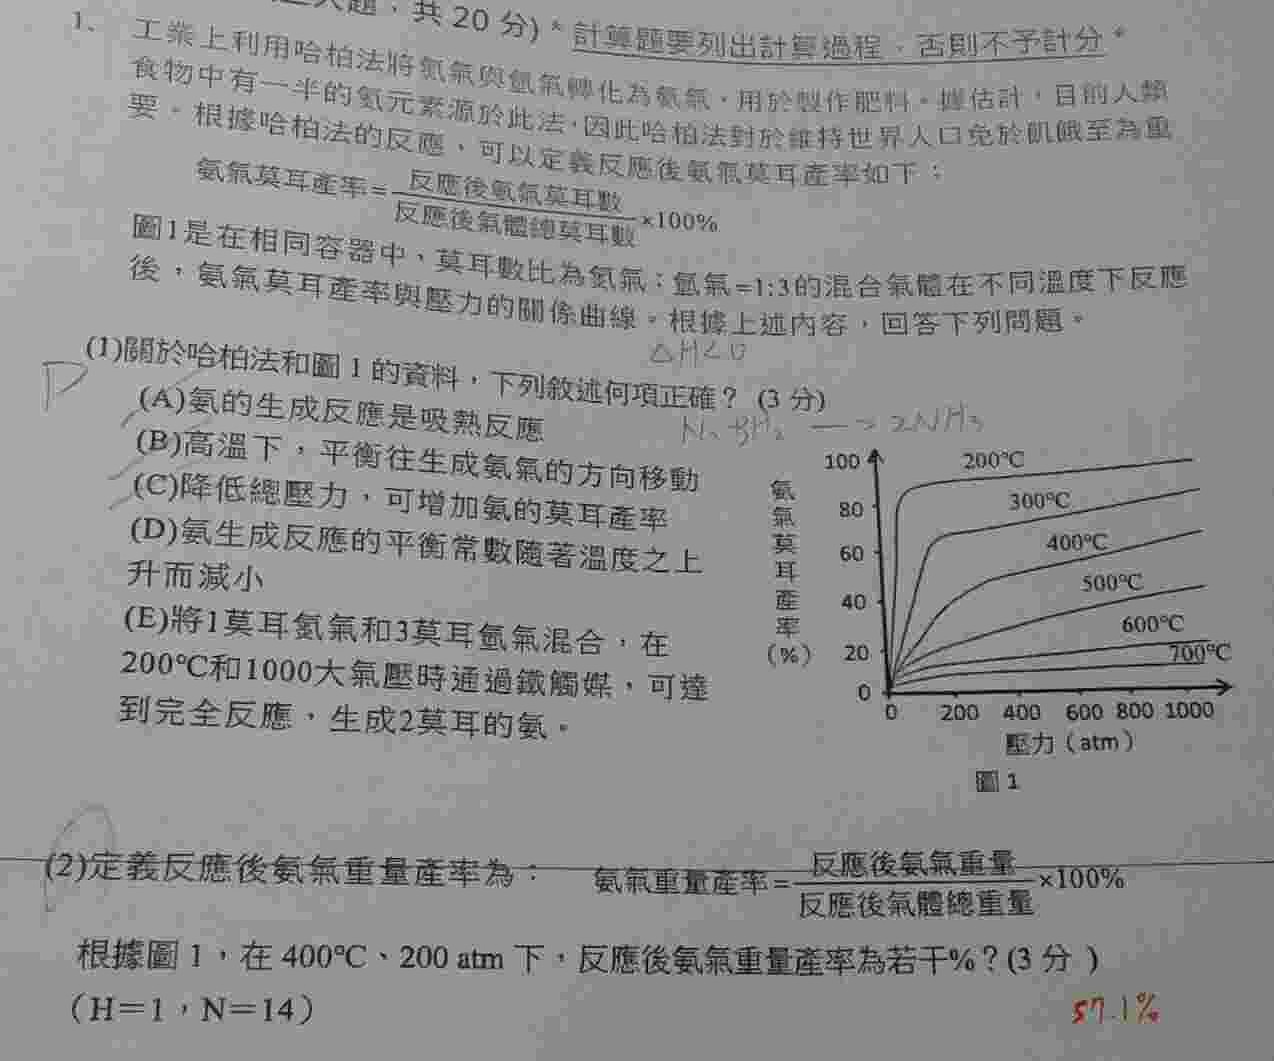 大題，共 20 分)＊計算題要列出計算過程，否則不予計分＊
1、 工業上利用哈柏法將氮氣與氫氣轉化為氨氣，用於製作肥料。據估計，目前人類
食物中有一半的氮元素源於此法，因此哈柏法對於維持世界人口免於飢餓至為重
要。根據哈柏法的反應，可以定義反應後氨氣莫耳產率如下：
氨氣莫耳產率=反應後氨氣莫耳數/反應後氣體總莫耳數×100%
圖1是在相同容器中，莫耳數比為氮氣：氫氣=1:3的混合氣體在不同溫度下反應
後，氨氣莫耳產率與壓力的關係曲線。根據上述內容，回答下列問題。
△H<0
D (1)關於哈柏法和圖 1 的資料，下列敘述何項正確？ (3 分)
(A)氨的生成反應是吸熱反應
N₂ 3H₂ → 2NH₃
(B)高溫下，平衡往生成氨氣的方向移動
(C)降低總壓力，可增加氨的莫耳產率
(D)氨生成反應的平衡常數隨著溫度之上
升而減小
(E)將1莫耳氮氣和3莫耳氫氣混合，在
200℃和1000大氣壓時通過鐵觸媒，可達
到完全反應，生成2莫耳的氨。
氨氣莫耳產率(%)
100
80
60
40
20
0
200℃
300℃
400℃
500℃
600℃
700℃
0 200 400 600 800 1000
壓力（atm）
圖 1
(2)定義反應後氨氣重量產率為： 氨氣重量產率=反應後氨氣重量/反應後氣體總重量×100%
根據圖 1，在 400℃、200 atm 下，反應後氨氣重量產率為若干%？(3 分 )
（H＝1，N＝14）
57.1%